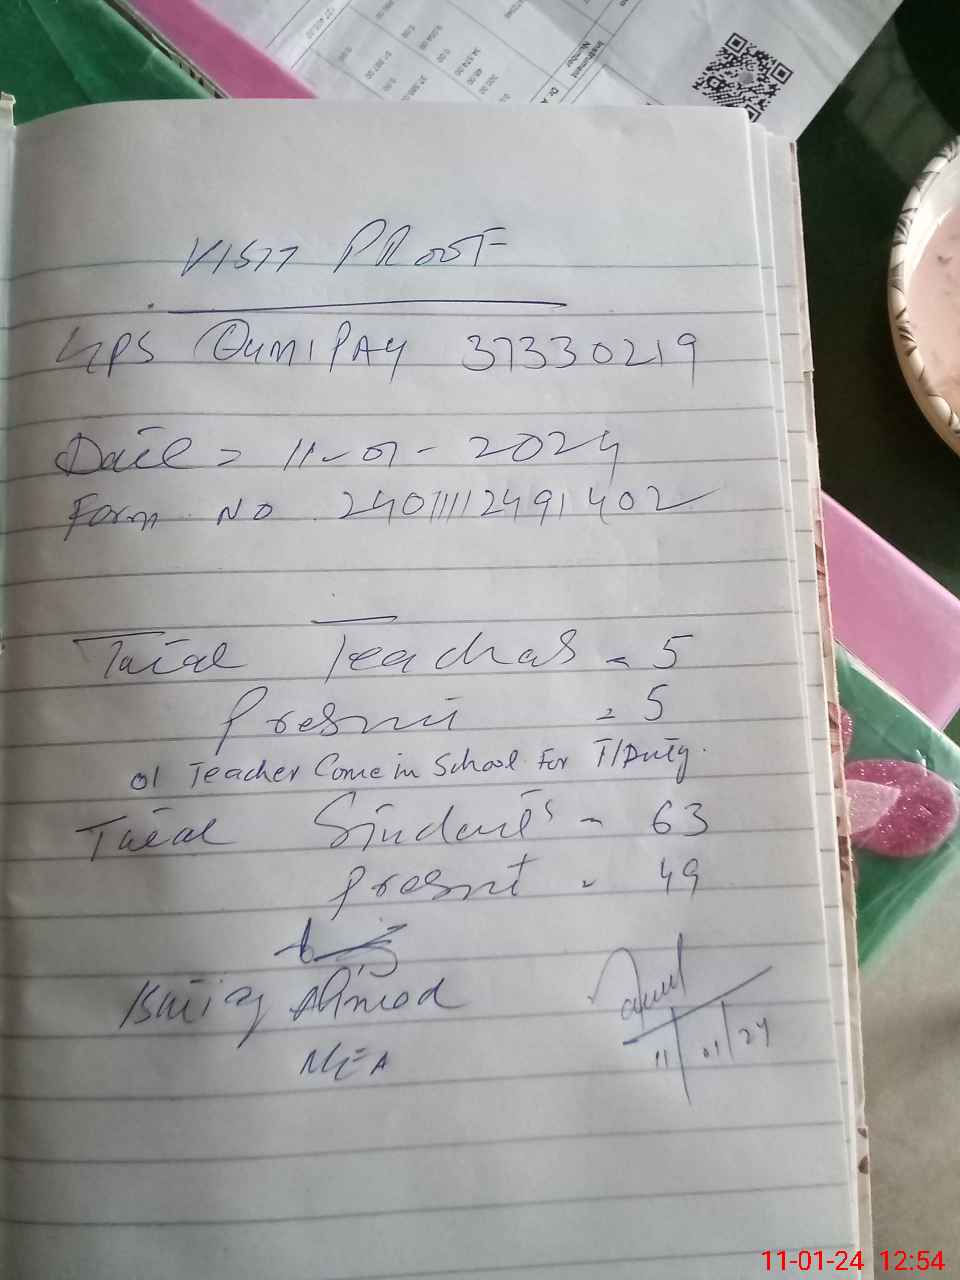 VISIT PROOF
GPS QUMIPAY 37330219
Date = 11-01-2024
Form No 2401112491402
Total Teachers = 5
Present = 5
01 Teacher Come in School For T/Duty.
Total Students = 63
Present = 49
Ahmad
MEA
11/01/24
11-01-24 12:54